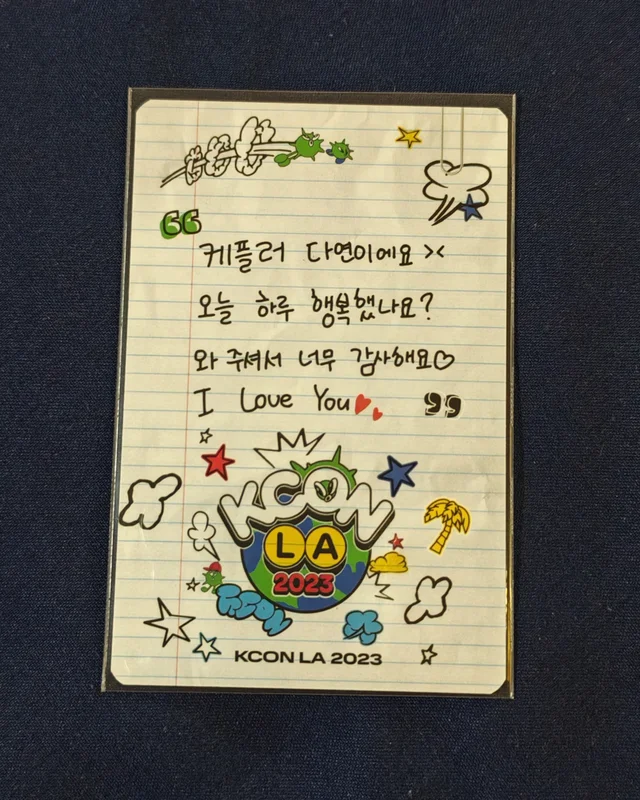 “
케플러 다연이에요 ><
오늘 하루 행복했나요?
와 주셔서 너무 감사해요♡
I Love You♥♥
”
KCON
LA
2023
KCON
KCON LA 2023